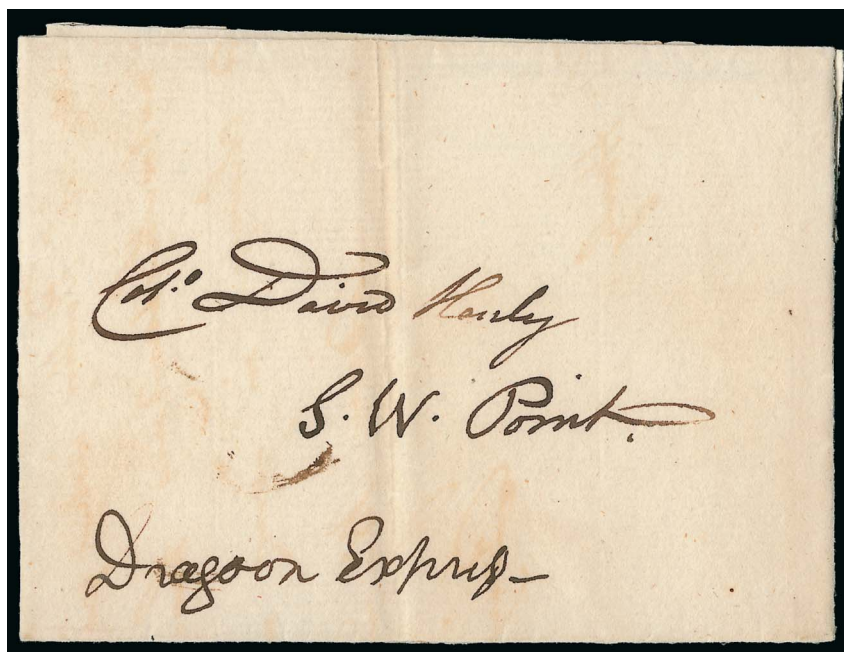 Col.º David Henly
S. W. Point.
Dragoon Express